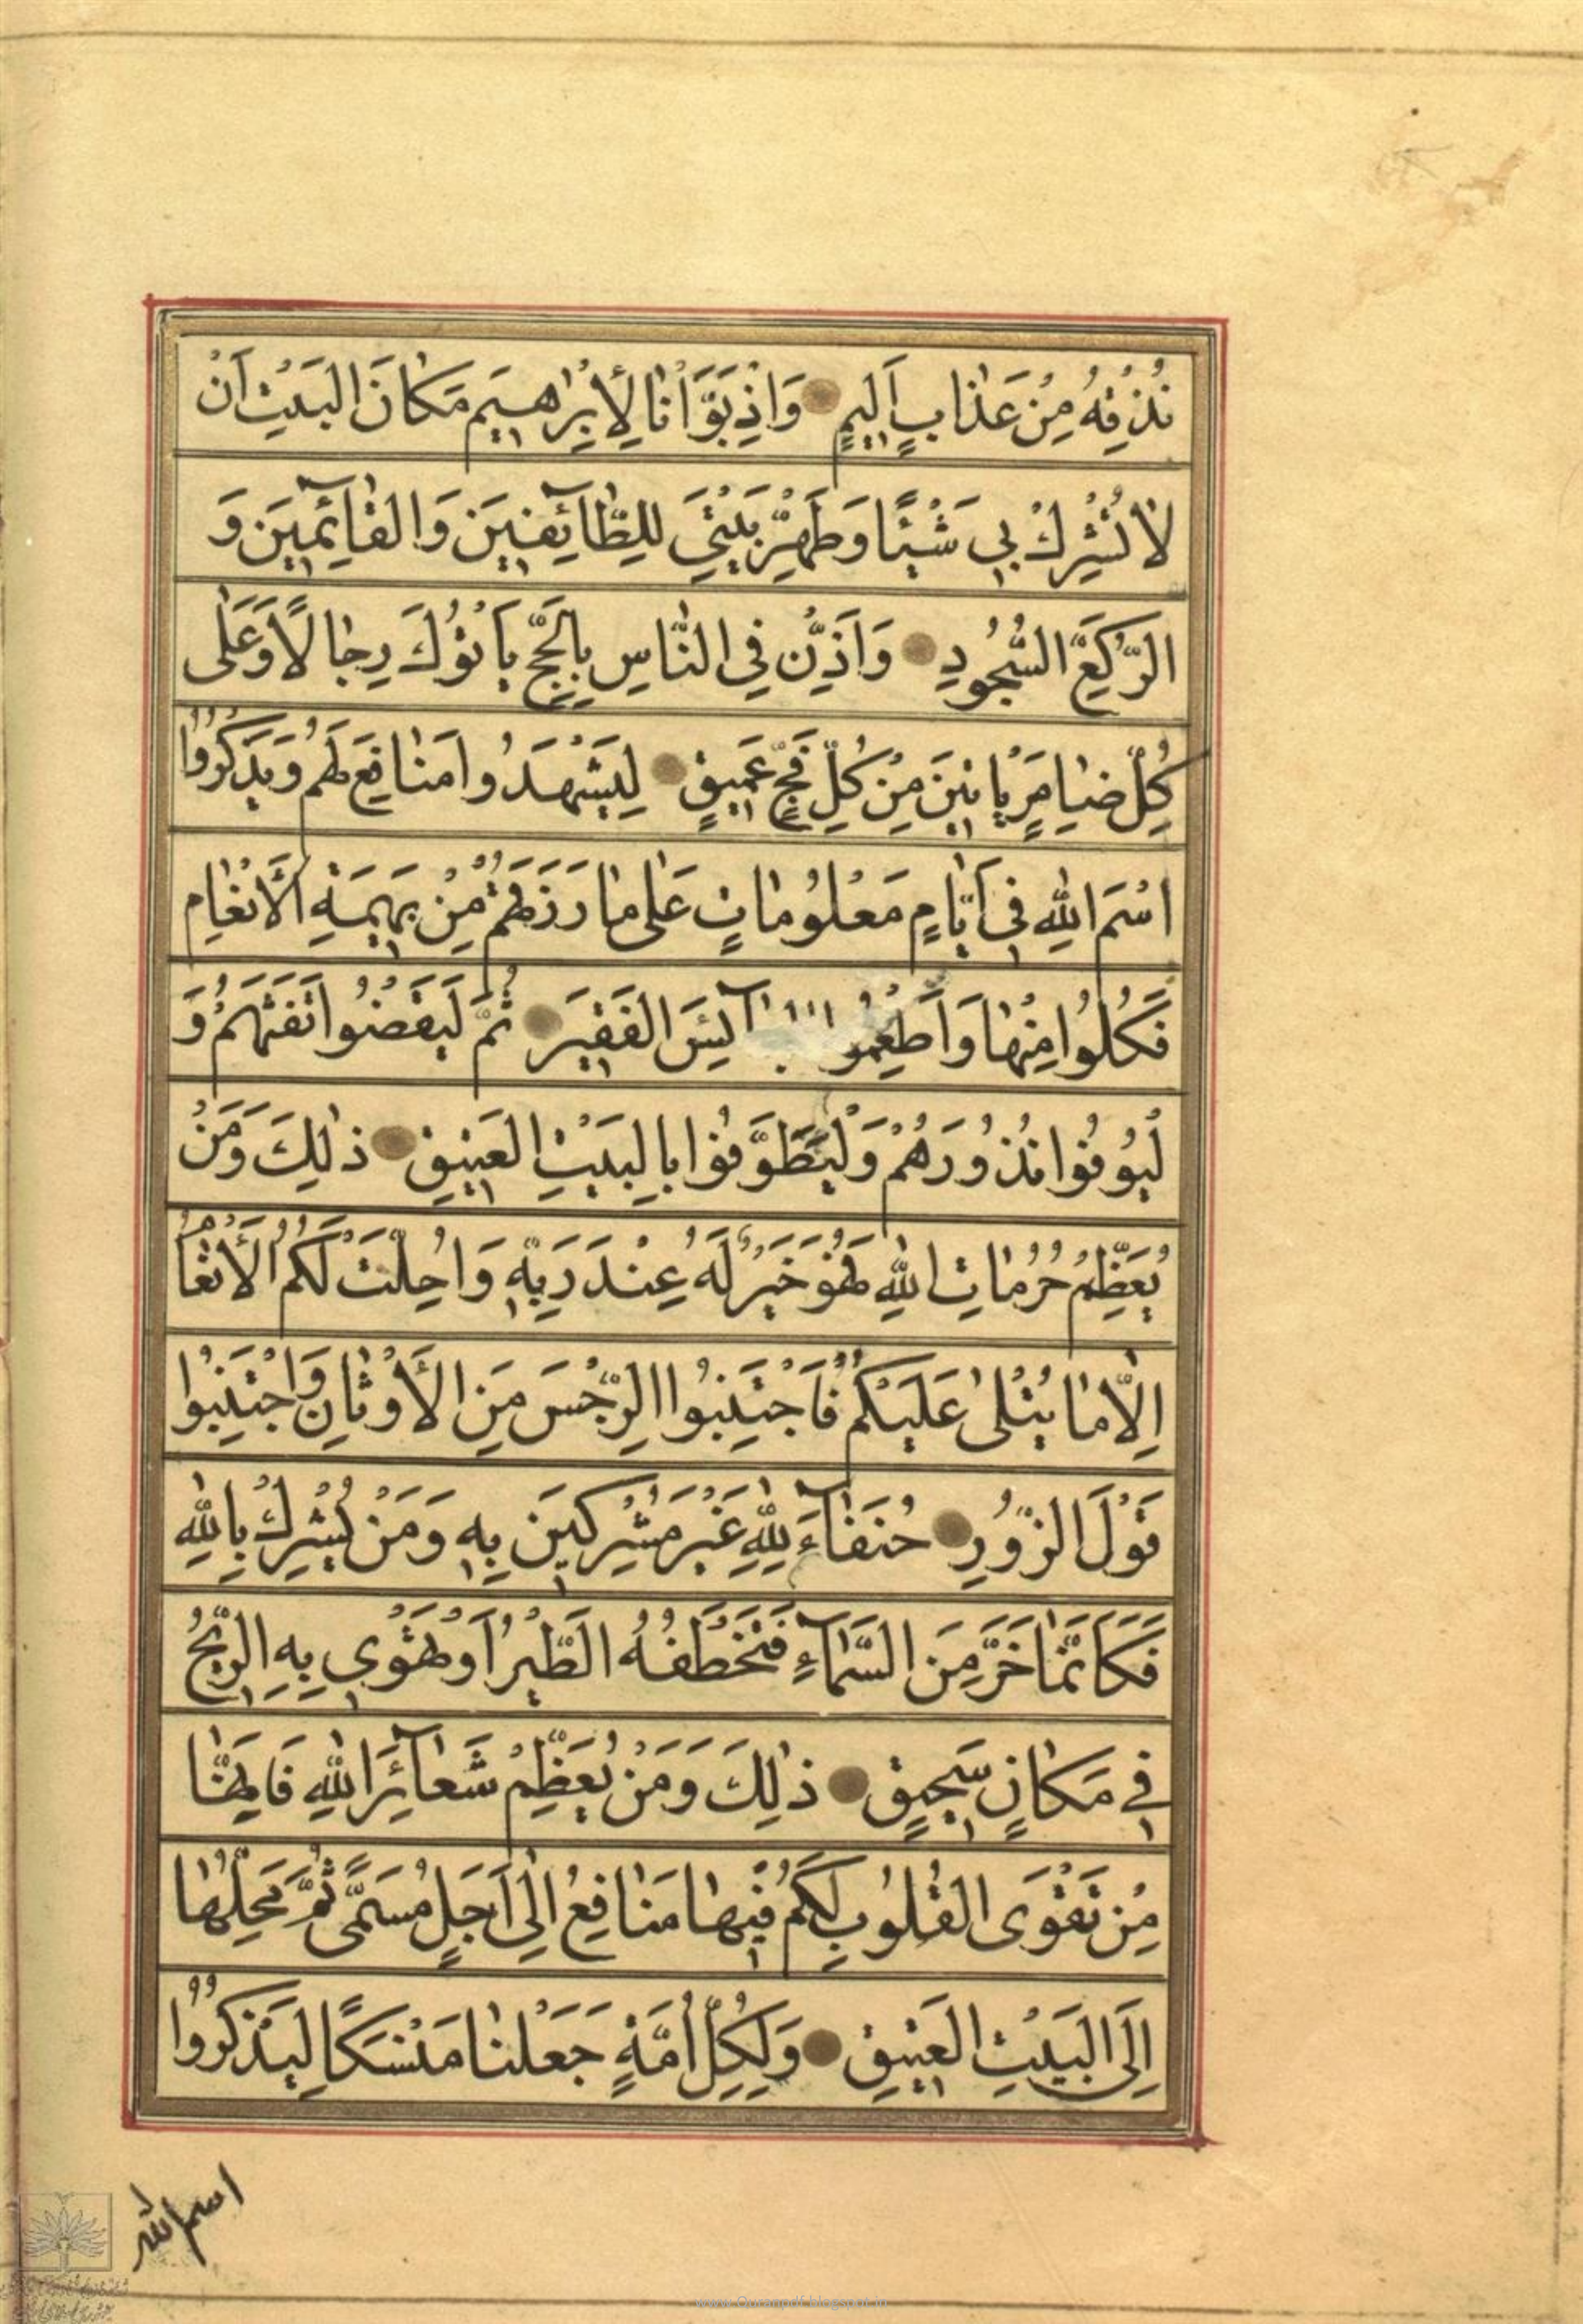 نُذِقْهُ مِنْ عَذَابٍ اَلِيمٍ وَاِذْ بَوَّأْنَا لِاِبْرٰهِيمَ مَكَانَ الْبَيْتِ اَنْ
لَا تُشْرِكْ بِي شَيْئًا وَطَهِّرْ بَيْتِيَ لِلطَّآئِفِينَ وَالْقَآئِمِينَ وَ
الرُّكَّعِ السُّجُودِ وَاَذِّنْ فِي النَّاسِ بِالْحَجِّ يَاْتُوكَ رِجَالًا وَعَلٰى
كُلِّ ضَامِرٍ يَاْتِينَ مِنْ كُلِّ فَجٍّ عَمِيقٍ لِيَشْهَدُوا مَنَافِعَ لَهُمْ وَيَذْكُرُوا
اسْمَ اللّٰهِ فِي اَيَّامٍ مَعْلُومَاتٍ عَلٰى مَا رَزَقَهُمْ مِنْ بَهِيمَةِ الْاَنْعَامِ
فَكُلُوا مِنْهَا وَاَطْعِمُوا الْفَقِيرَ ثُمَّ لْيَقْضُوا تَفَثَهُمْ وَ
لْيُوفُوا نُذُورَهُمْ وَلْيَطَّوَّفُوا بِالْبَيْتِ الْعَتِيقِ ذٰلِكَ وَمَنْ
يُعَظِّمْ حُرُمَاتِ اللّٰهِ فَهُوَ خَيْرٌ لَهُ عِنْدَ رَبِّهِ وَاُحِلَّتْ لَكُمُ الْاَنْعَامُ
اِلَّا مَا يُتْلٰى عَلَيْكُمْ فَاجْتَنِبُوا الرِّجْسَ مِنَ الْاَوْثَانِ وَاجْتَنِبُوا
قَوْلَ الزُّورِ حُنَفَآءَ لِلّٰهِ غَيْرَ مُشْرِكِينَ بِهِ وَمَنْ يُشْرِكْ بِاللّٰهِ
فَكَاَنَّمَا خَرَّ مِنَ السَّمَآءِ فَتَخْطَفُهُ الطَّيْرُ اَوْ تَهْوِي بِهِ الرِّيحُ
فِي مَكَانٍ سَحِيقٍ ذٰلِكَ وَمَنْ يُعَظِّمْ شَعَآئِرَ اللّٰهِ فَاِنَّهَا
مِنْ تَقْوَى الْقُلُوبِ لَكُمْ فِيهَا مَنَافِعُ اِلٰى اَجَلٍ مُسَمًّى ثُمَّ مَحِلُّهَا
اِلَى الْبَيْتِ الْعَتِيقِ وَلِكُلِّ اُمَّةٍ جَعَلْنَا مَنْسَكًا لِيَذْكُرُوا
اسم الله
www.Quranpdf.blogspot.in